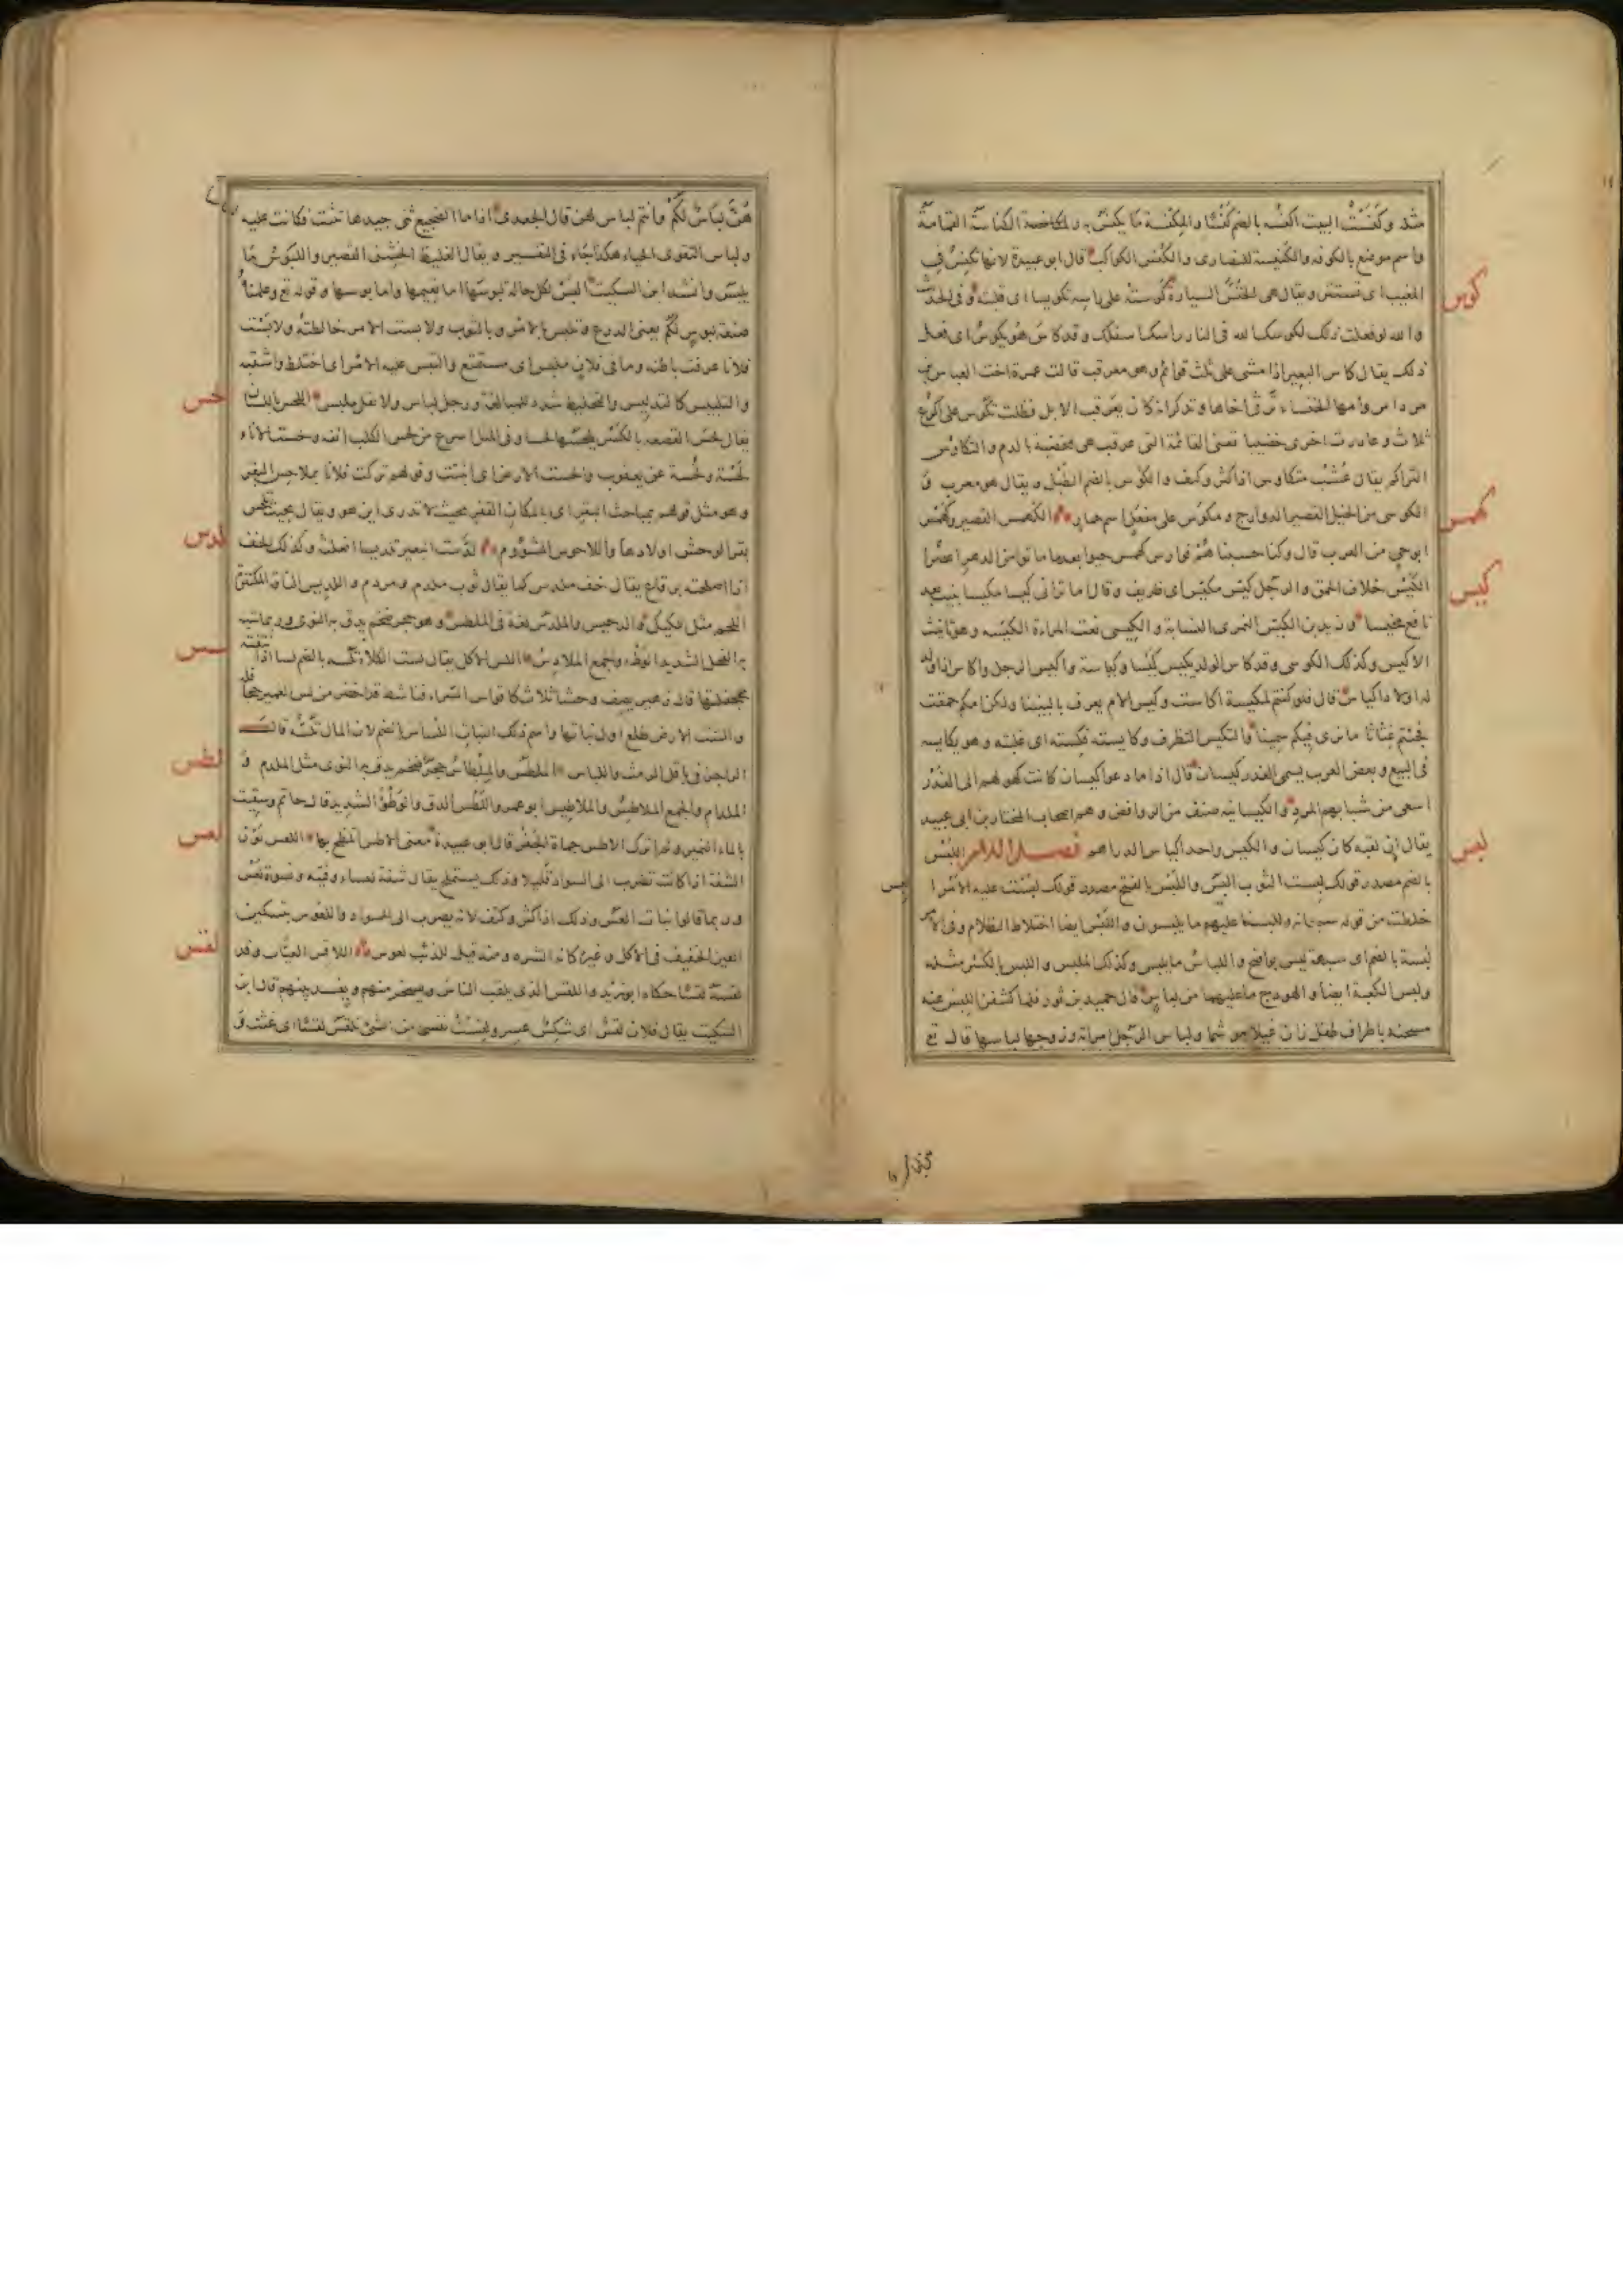 مثله وكنست البيت اكنسه بالضم كنسا والمكنسة ما يكنس به والكناسة القمامة
واسم موضع بالكوفه والكنيسة للنصارى والكنس الكواكب قال ابو عبيدة لانها تكنس فى
المغيب اى تستتر ويقال هى الخنس السيارة كوسته على راسه تكويسا اى قلبته وفى الحديث
كوس
والله لو فعلت ذلك لكوسك الله فى النار راسك اسفلك وقد كاس هو يكوس اى فعل
ذلك يقال كاس البعير اذا مشى على ثلث قوائم وهو معرقب قالت عمرة اخت العباس بن
مرداس وامها الخنساء ترثى اخاها وتذكر انه كان يعرقب الابل فظلت تكوس على اكرع
ثلاث وغادرت اخرى خضيبا تعنى القائمة التى عرقب هى مخضبة بالدم والتكاوس
التراكم يقال عشب متكاوس اذا كثر وكثف والكوس بالضم الطبل ويقال هو معرب و
الكوسى من الخيل القصير الدوارج ومكوس على مفعل اسم حمار الكهمس القصير وكهمس
كهمس
ابو حي من العرب قال وكنا حسبنا هم فوارس كهمس حيوا بعدما ماتوا من الدهر اعصرا
الكيس خلاف الحمق والرجل كيس مكيس اى ظريف وقال اما ترانى كيسا مكيسا بنيت بعد
كيس
نافع مخيسا وزيد بن الكيس النمرى النسابة والكيسى نعت المراءة الكيسه وهو تانيث
الاكيس وكذلك الكوسى وقد كاس الولد يكيس كيسا وكياسة واكيس الرجل واكاس اذا ولد
له اولاد اكياس قال فلو كنتم لمكيسة اكاست وكيس الام يعرف بالبنينا ولكن امكم حمقت
فجئتم غثاثا ما نرى فيكم سمينا والتكيس التظرف وكايسته فكسته اى غلبته وهو يكايسه
فى البيع وبعض العرب يسمى الغدر كيسان قال اذا ما دعوا كيسان كانت كهولهم الى الغدر
اسعى من شبابهم المرد والكيسانيه صنف من الروافض وهم اصحاب المختار بن ابى عبيد
يقال ان لقبه كان كيسان والكيس واحد اكياس الدراهم فصل اللام اللبس
لبس
بالضم مصدر قولك لبست الثوب البس واللبس بالفتح مصدر قولك لبست عليه الامر ا
خلطت من قوله سبحانه وللبسنا عليهم ما يلبسون واللبس ايضا اختلاط الظلام وفى الامر
لبسة بالضم اى شبهة ليس بواضح واللباس ما يلبس وكذلك الملبس واللبس بالكسر مثله
ولبس الكعبة ايضا والهودج ما عليهما من لباس قال حميد بن ثور فلما كشفن اللبس عنه
مسحنه باطراف طفل زان غيلا موشما ولباس الرجل امراته وزوجها لباسها قال تع
هن لباس لكم وانتم لباس لهن قال الجعدى اذا ما الضجيع ثنى جيدها تثنت فكانت عليه
ولباس التقوى الحياء هكذا جاء فى التفسير ويقال الغليظ الخشن القصير واللبوس ما
يلبس وانشد ابن السكيت البس لكل حالة لبوسها اما نعيمها واما بوسها وقوله تع وعلمناه
صنعة لبوس لكم يعنى الدرع وتلبس بالامر وبالثوب ولابست الامر خالطته ولابست
فلانا عرفت باطنه وما فى فلان ملبس اى مستمتع والتبس عليه الامر اى اختلط واشتبه
والتلبيس كالتدليس والتخليط شدد للمبالغة ورجل لباس ولا تقل ملبس اللحس باللسان
لحس
يقال لحس القصعة بالكسر يلحسها لحسا وفى المثل اسرع من لحس الكلب انفه ولحست الاناء
لحسة ولحسة عن يعقوب والحست الارض اى انبتت وقولهم تركت فلانا بملاحس البقر
وهو مثل قولهم بمباحث البقر اى بالمكان القفر بحيث لا تدرى اين هو ويقال بحيث تلحس
بقر الوحش اولادها واللاحوس المشؤوم لدست البعير تلديسا انعلته وكذلك الخف
لدس
اذا اصلحته برقاع يقال خف ملدس كما يقال ثوب ملدم ومردم واللديس الناقة المكتنزة
اللحم مثل اللكيك والدخيس والملدس لغة فى الملطس وهو حجر ضخم يدق به النوى وربما شبه
به الفحل الشديد الوطء والجمع الملادس اللس الاكل يقال لست الكلاء تلسه بالضم لسا اذا نتفته
لسس
بجحفلتها قال زهير يصف وحشا ثلاث كاقواس السراء وناشط قد اخضر من لس الغمير جحافله
والست الارض طلع اول نباتها واسم ذلك النبات اللساس بالضم لان المال تلسه قال
الراجز فى باقل الرمث واللساس الملطس والملطاس حجر ضخم يدق به النوى مثل الملدم و
لطس
الملدام والجمع الملاطس والملاطيس ابو عمرو اللطس الدق والوطؤ الشديد قال حاتم وسقيت
بالماء النمير ولم اترك الاطس حماة الجفر قال ابو عبيدة معنى الاطس اتلطخ بها اللعس لون
لعس
الشفة اذا كانت تضرب الى السواد قليلا وذلك يستملح يقال شفة لعساء وفتية ونسوة لعس
وربما قالوا نبات العس وذلك اذا كثر وكثف لانه يضرب الى السواد واللعوس بتسكين
العين الخفيف فى الاكل وغيره كانه الشره ومنه قيل للذئب لعوس اللاقس العياب وقد
لقس
لقسه لقسا حكاه ابو زيد واللقس الذى يلقب الناس ويسخر منهم ويفسد بينهم قال ابن
السكيت يقال فلان لقس اى شكس عسر ولقست نفسى من الشئ تلقس لقسا اى غثت و